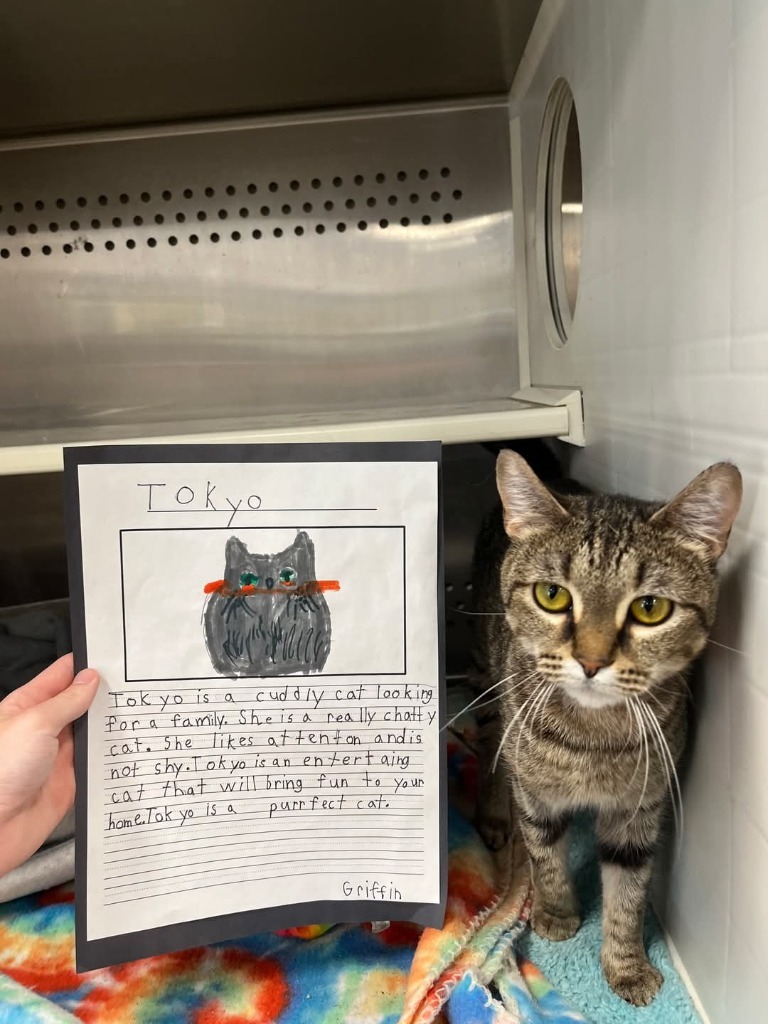 Tokyo
Tokyo is a cuddly cat looking
for a family. She is a really chatty
cat. She likes attenton andis
not shy. Tokyo is an entertaing
cat that will bring fun to your
home. Tokyo is a purrfect cat.
Griffin